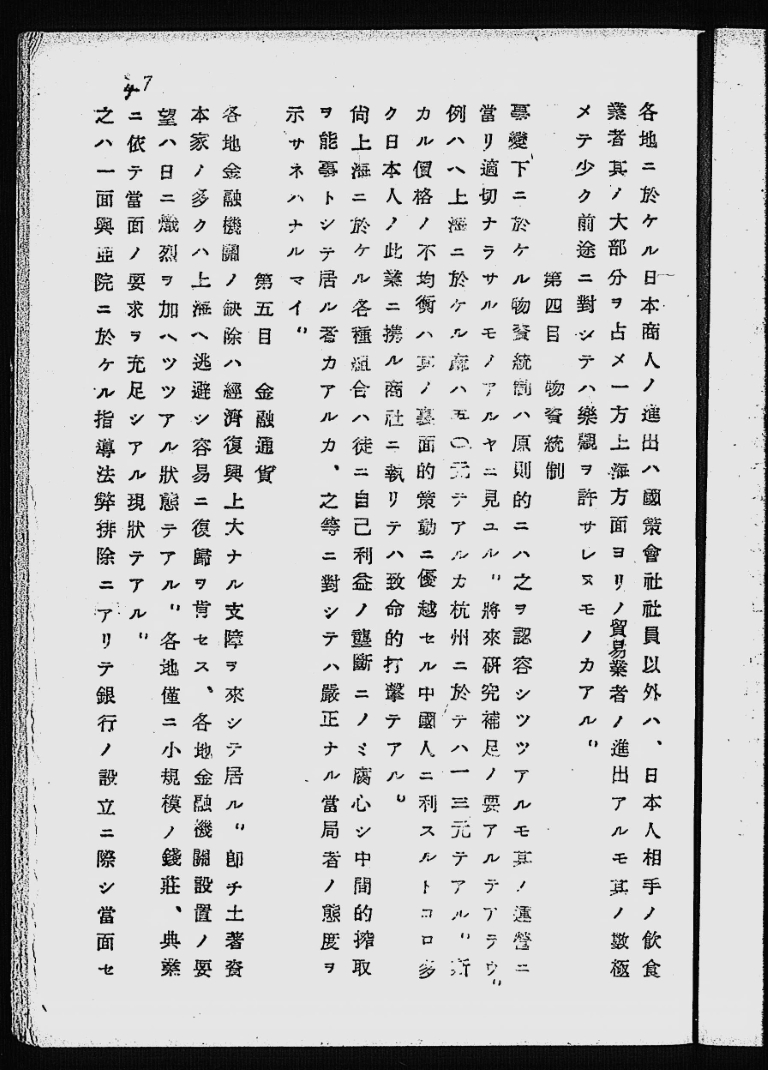 7
各地ニ於ケル日本商人ノ進出ハ國策會社社員以外ハ、日本人相手ノ飮食
業者其ノ大部分ヲ占メ一方上海方面ヨリノ貿易業者ノ進出アルモ其ノ數極
メテ少ク前途ニ對シテハ樂觀ヲ許サレヌモノカアル。
第四目　物資統制
事變下ニ於ケル物資統制ハ原則的ニハ之ヲ認容シツツアルモ其ノ運營ニ
當リ適切ナラサルモノアルヤニ見ユル。將來硏究補足ノ要アルテアラウ。
例ハヘ上海ニ於ケル麻ハ五〇元テアルカ杭州ニ於テハ一三元テアル。斯
カル價格ノ不均衡ハ其ノ裏面的策動ニ優越セル中國人ニ利スルトコロ多
ク日本人ノ此業ニ携ル商社ニ執リテハ致命的打擊テアル。
尙上海ニ於ケル各種組合ハ徒ニ自己利益ノ壟斷ニノミ腐心シ中間的搾取
ヲ能事トシテ居ル者カアルカ、之等ニ對シテハ嚴正ナル當局者ノ態度ヲ
示サネハナルマイ。
第五目　金融通貨
各地金融機關ノ缺除ハ經濟復興上大ナル支障ヲ來シテ居ル。卽チ土著資
本家ノ多クハ上海ヘ逃避シ容易ニ復歸ヲ肯セス、各地金融機關設置ノ要
望ハ日ニ熾烈ヲ加ヘツツアル狀態テアル。各地僅ニ小規模ノ錢莊、典業
ニ依テ當面ノ要求ヲ充足シアル現狀テアル。
之ハ一面興亞院ニ於ケル指導法弊排除ニアリテ銀行ノ設立ニ際シ當面セ